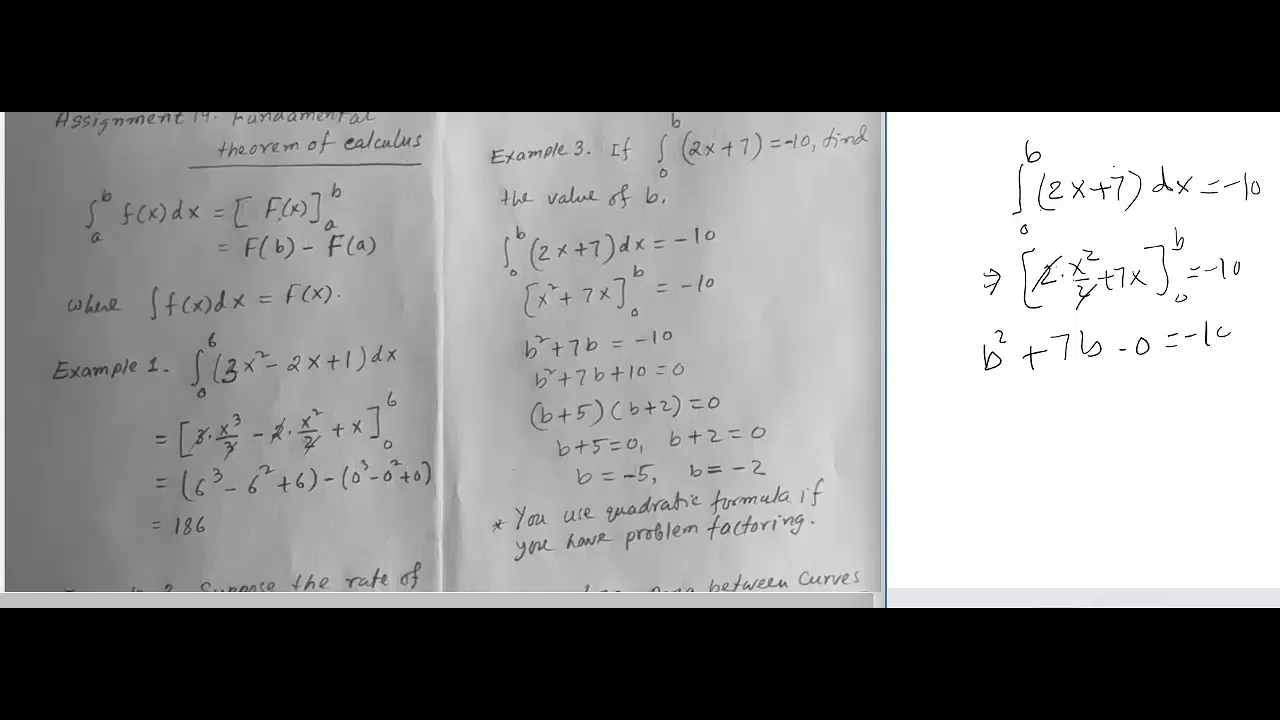 Assignment 14. Fundamental
theorem of calculus
∫_a^b f(x)dx = [F(x)]_a^b
= F(b) - F(a)
where ∫f(x)dx = F(x).
Example 1. ∫_0^6 (3x² - 2x + 1) dx
= [3·x³/3 - 2·x²/2 + x]_0^6
= (6³ - 6² + 6) - (0³ - 0² + 0)
= 186
Suppose the rate of
Example 3. If ∫_0^b (2x + 7) = -10, find
the value of b.
∫_0^b (2x + 7) dx = -10
[x² + 7x]_0^b = -10
b² + 7b = -10
b² + 7b + 10 = 0
(b + 5)(b + 2) = 0
b + 5 = 0, b + 2 = 0
b = -5, b = -2
* You use quadratic formula if
you have problem factoring.
between curves
∫_0^b (2x + 7) dx = -10
⇒ [2·x²/2 + 7x]_0^b = -10
b² + 7b - 0 = -10